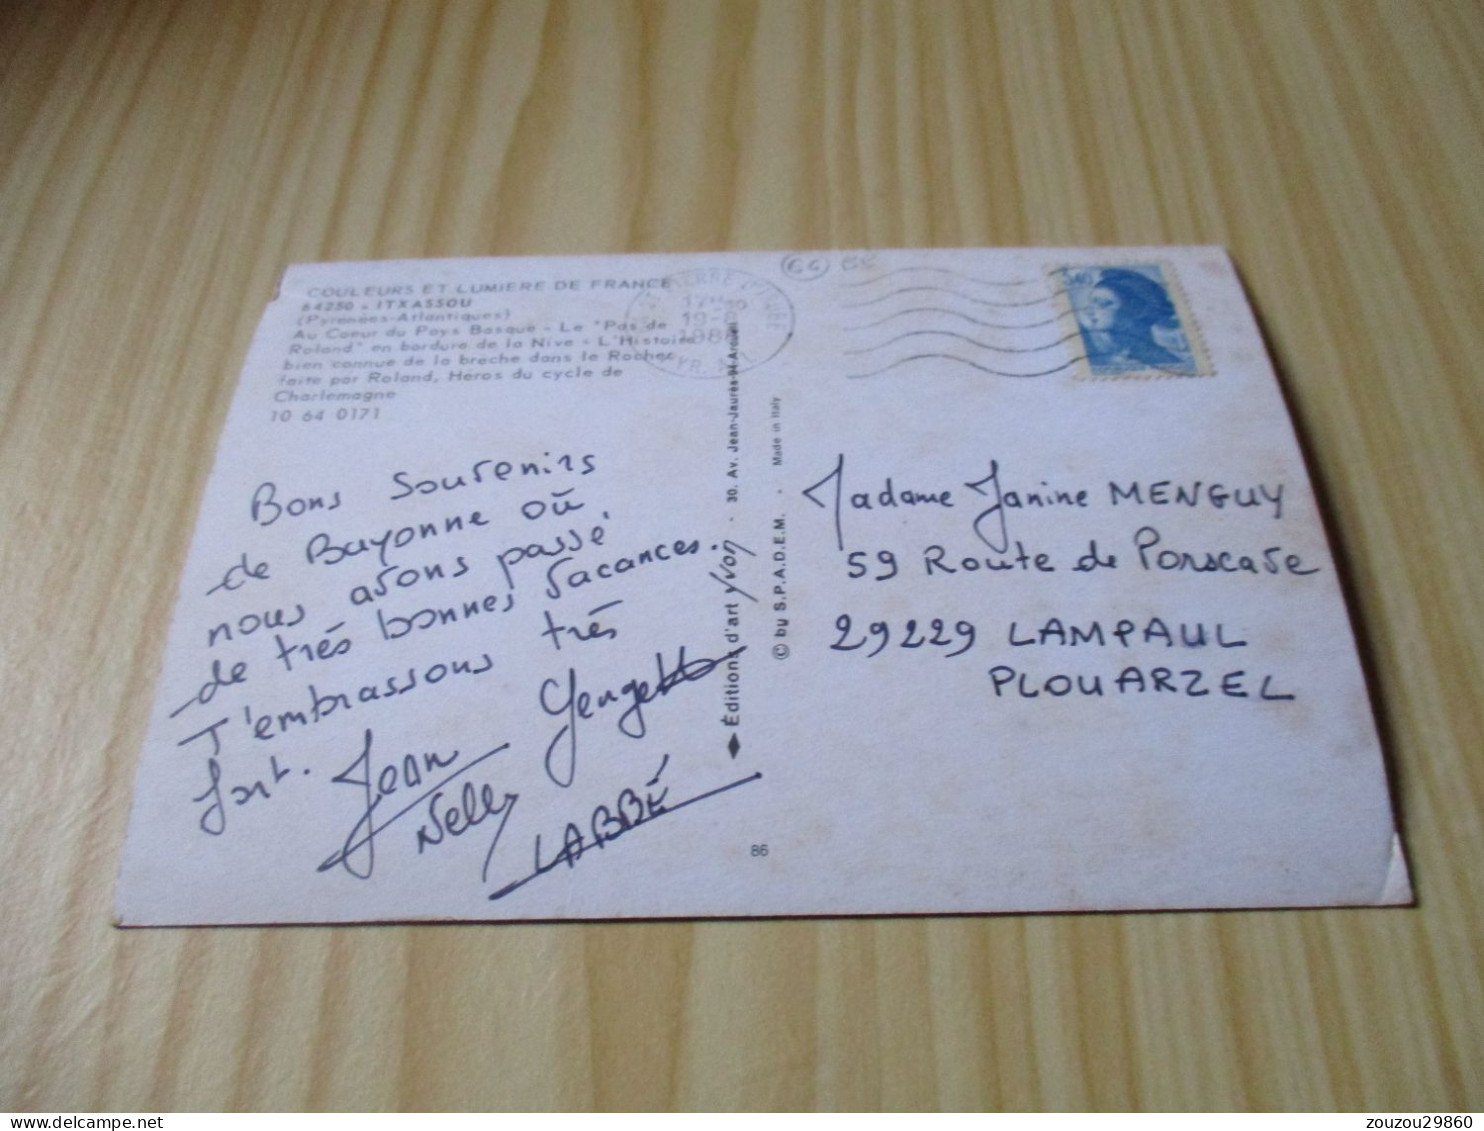 COULEURS ET LUMIERE DE FRANCE
64250 - ITXASSOU
(Pyrenées-Atlantiques)
Au Coeur du Pays Basque - Le "Pas de
Roland" en bordure de la Nive - L'Histoire
bien connue de la brèche dans le Rocher
faite par Roland, Héros du cycle de
Charlemagne
10 64 0171
Bons Souvenirs
de Bayonne où
nous avons passé
de très bonnes vacances.
J'embrassons très
fort.
Jean
Nelly
LABBÉ
Éditions d'art yvon - 30. Av. Jean-Jaurès-94-Arcueil
© by S.P.A.D.E.M. - Made in Italy
86
64
17H
19
Madame Janine MENGUY
59 Route de Porscave
29229 LAMPAUL
PLOUARZEL
zouzou29860